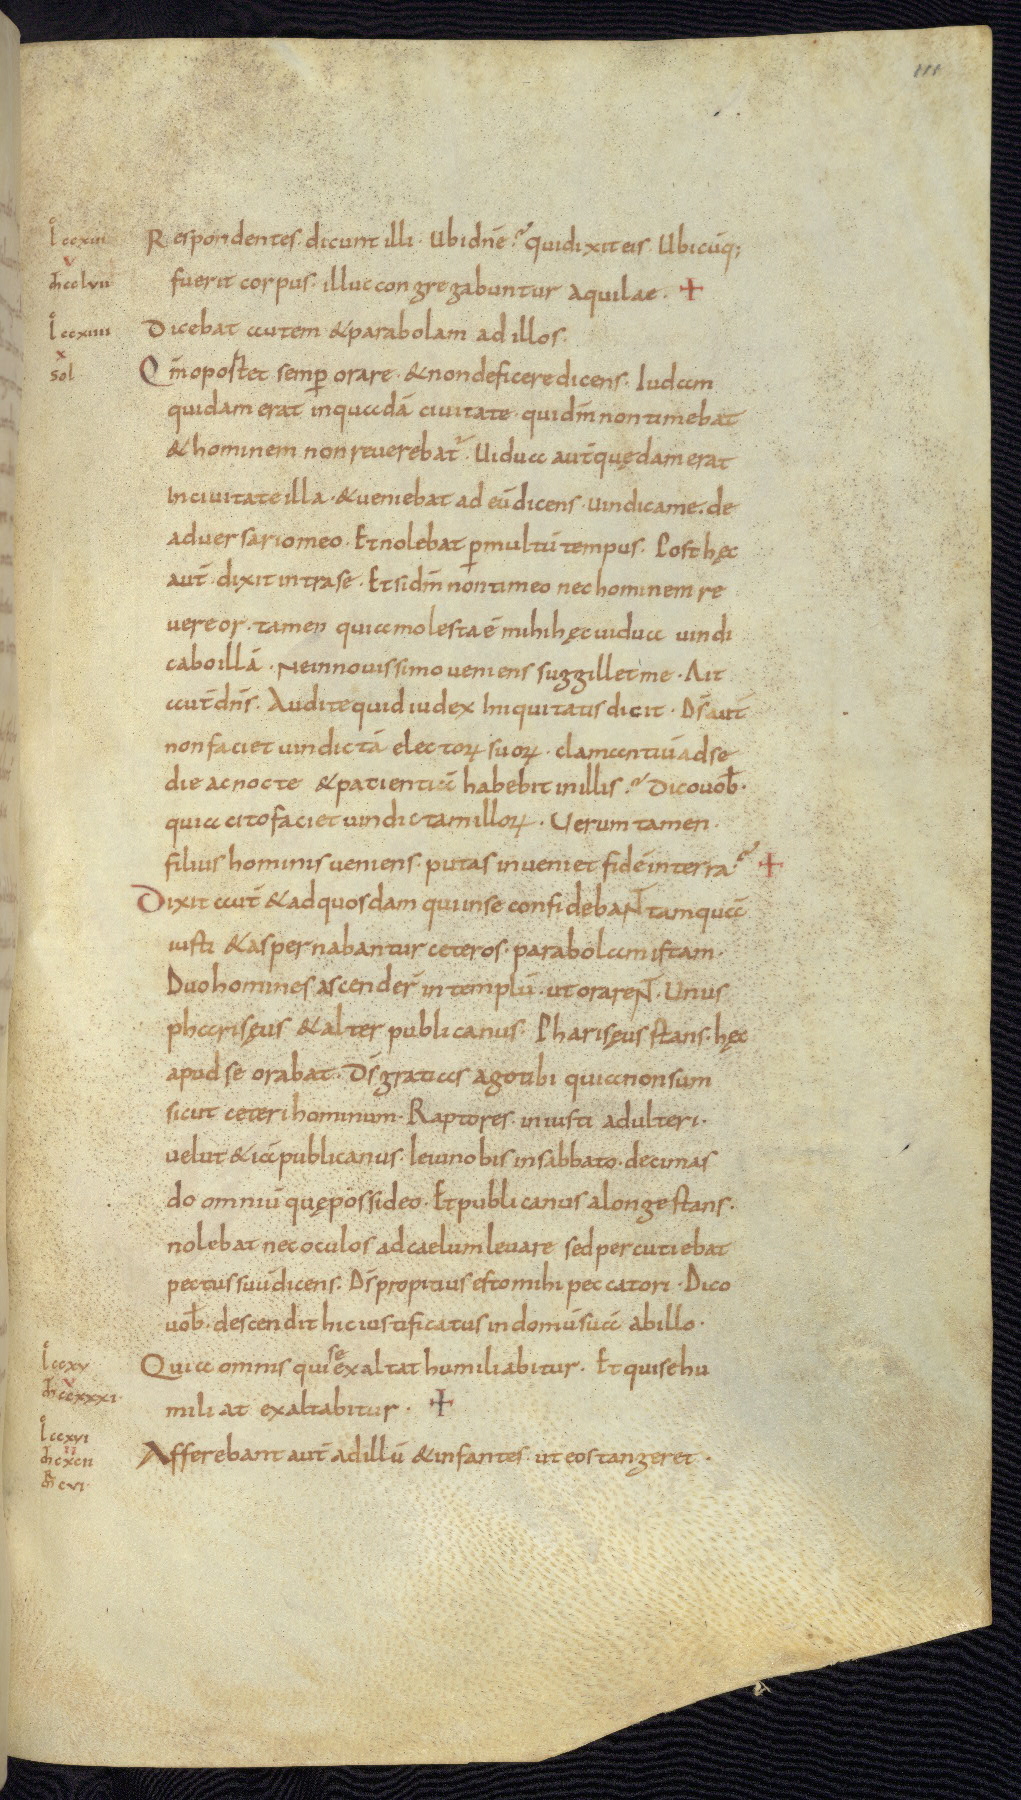 111
l ccxiii Respondentes dicunt illi · Ubi dn̄e? qui dixit eis · Ubicūq;
m̄ cclvii fuerit corpus · illuc congregabuntur aquilae · +
l ccxiiii Dicebat autem & parabolam ad illos ·
x
sol Qm̄ oportet semp̄ orare · & non deficere dicens · Iudam
quidam erat in quadā civitate · qui dm̄ non timebat
& hominem non reverebat᷑ · Uidua aut̄ quędam erat
In civitate illa · & veniebat ad eū dicens · vindica me · de
adversario meo · Et nolebat p̱ multū tempus · Post hęc
aut̄ · dixit intra se · Et si dm̄ non timeo nec hominem re
vereor · tamen quia molesta ē mihi hęc vidua vindi
cabo illā · Ne in novissimo veniens suggillet me · Ait
aut̄ dn̄s · Audite quid iudex iniquitatis dicit · Ds̄ aut̄
non faciet vindictā electoꝝ suoꝝ · clamantiū ad se
die ac nocte & patientiā habebit in illis? Dico vob̄ ·
quia cito faciet vindictam illoꝝ · Verum tamen ·
filius hominis veniens · putas inveniet fidē in terra? +
Dixit aut̄ & ad quosdam qui in se confidebant tamquā
iusti & aspernabantur ceteros · parabolam istam ·
Duo homines ascender̄ in templū · ut orarent · Unus
pharisęus & alter publicanus · Pharisęus stans · hęc
apud se orabat · Ds̄ gratias ago tibi quia non sum
sicut ceteri hominum · Raptores · iniusti adulteri ·
velut & iā publicanus · ieiuno bis in sabbato · decimas
do omniū quę possideo · Et publicanus a longe stans ·
nolebat nec oculos ad caelum levare sed percutiebat
pectus suū dicens · Ds̄ propitius esto mihi peccatori · Dico
vob̄ · descendit hic iustificatus in domū suā ab illo ·
l ccxv Quia omnis qui se exaltat humiliabitur · Et qui se hu
v
m̄ ccxxxi · miliat exaltabitur · +
l ccxvi
ii
m̄ cxcii Afferebant aut̄ ad illū & infantes · ut eos tangeret ·
m̄r cvi ·